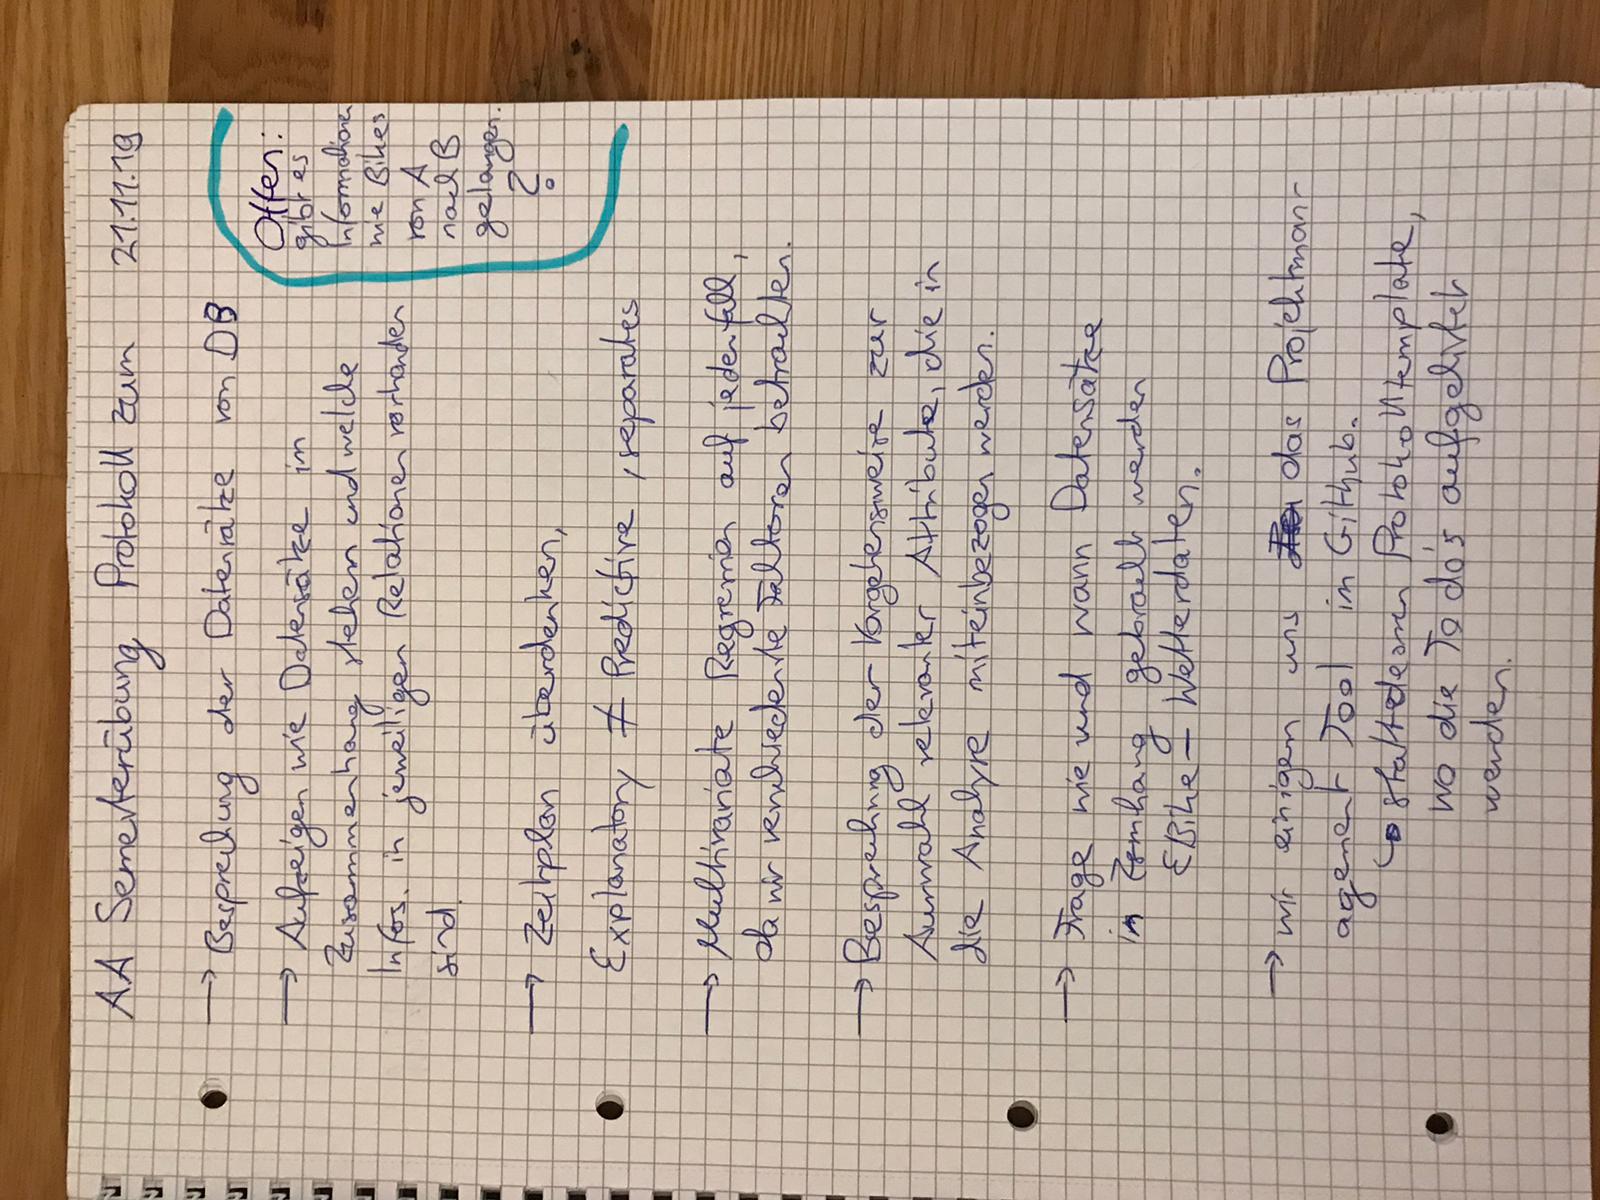 AA Semesterübung Protokoll zum 21.11.19
→ Besprechung der Datensätze von DB
→ Aufzeigen wie Datensätze im
Zusammenhang stehen und welche
Infos. in jeweiligen Relationen vorhanden
sind.
Offen:
gibt es
Informationen
wie Bikes
von A
nach B
gelangen.
?
→ Zeitplan überdenken,
Explanatory ≠ Predictive, separates
→ Multivariate Regression auf jedenfall,
da wir verschiedenste Faktoren betrachten.
→ Besprechung der Vorgehensweise zur
Auswahl relevanter Attribute, die in
die Analyse miteinbezogen werden.
→ Frage wie und wann Datensätze
in Zsmhang gebracht werden
EBike – Wetterdaten.
→ wir einigen uns das Projektman-
agement Tool im Github.
↳ stattdessen Protokolltemplate,
wo die To do's aufgelistet
werden.